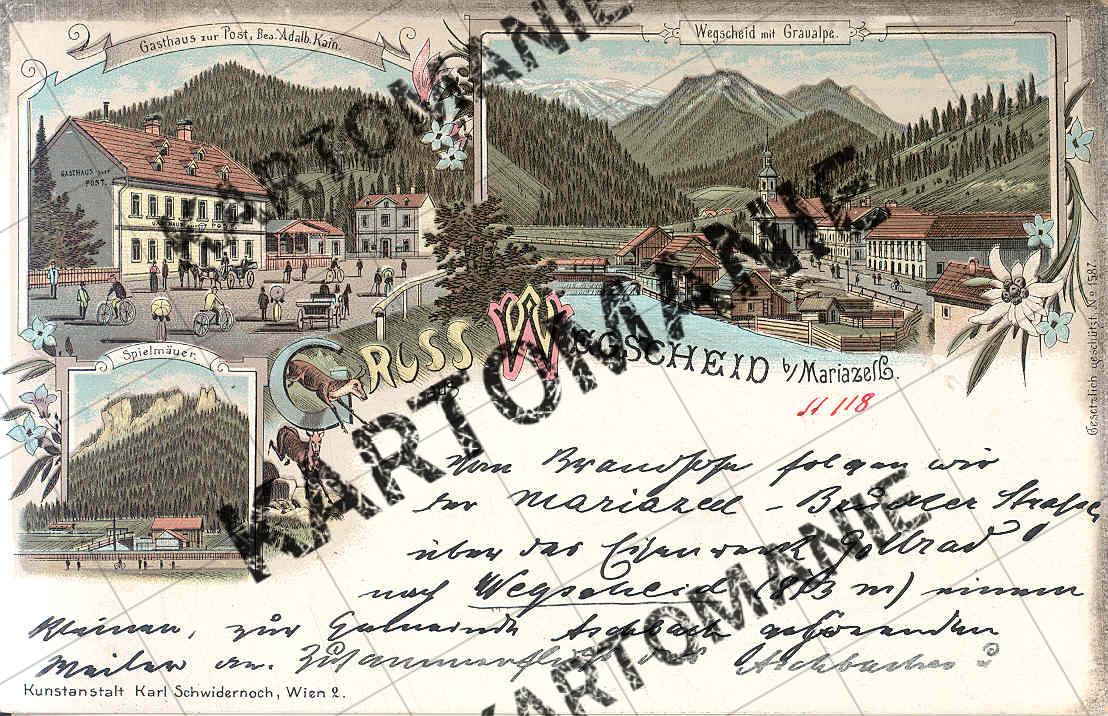 Gasthaus zur Post, Bes. Adalb. Kain.
Wegscheid mit Graualpe.
GASTHAUS zur POST.
Spielmäuer.
GRUSS aus WEGSCHEID b/ Mariazell.
11 118
Vom Brandhofe folgen wir
der Mariazell - Brucker Strasse,
über das Eisenwerk Gollrad
nach Wegscheid (803 m) einem
kleinen, zur Gemeinde Aschbach gehörenden
Weiler am Zusammenfluss des Aschbaches
Kunstanstalt Karl Schwidernoch, Wien 2.
Gesetzlich geschützt. No 587.
KARTOMANIE
KARTOMANIE
KARTOMANIE
KARTOMANIE
KARTOMANIE